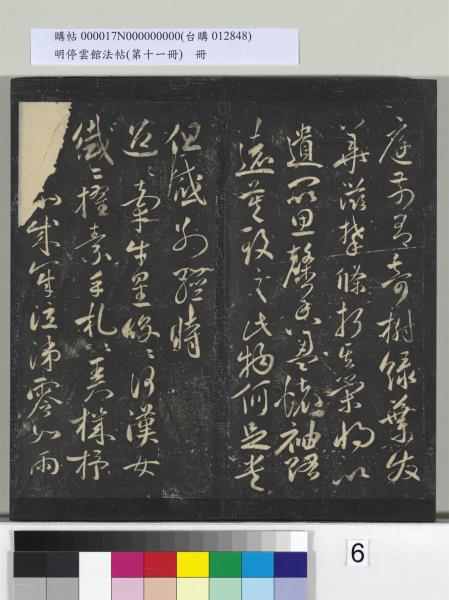 購帖 000017N000000000(台購 012848)
明停雲館法帖(第十一冊) 冊
庭前有奇樹綠葉發
華滋攀條折其榮將以
遺所思馨香盈懷袖路
遠莫致之此物何足貴
但感別經時
迢〻牽牛星皎〻河漢女
纖〻擢素手札〻弄機杼
不成章泣涕零如雨
6